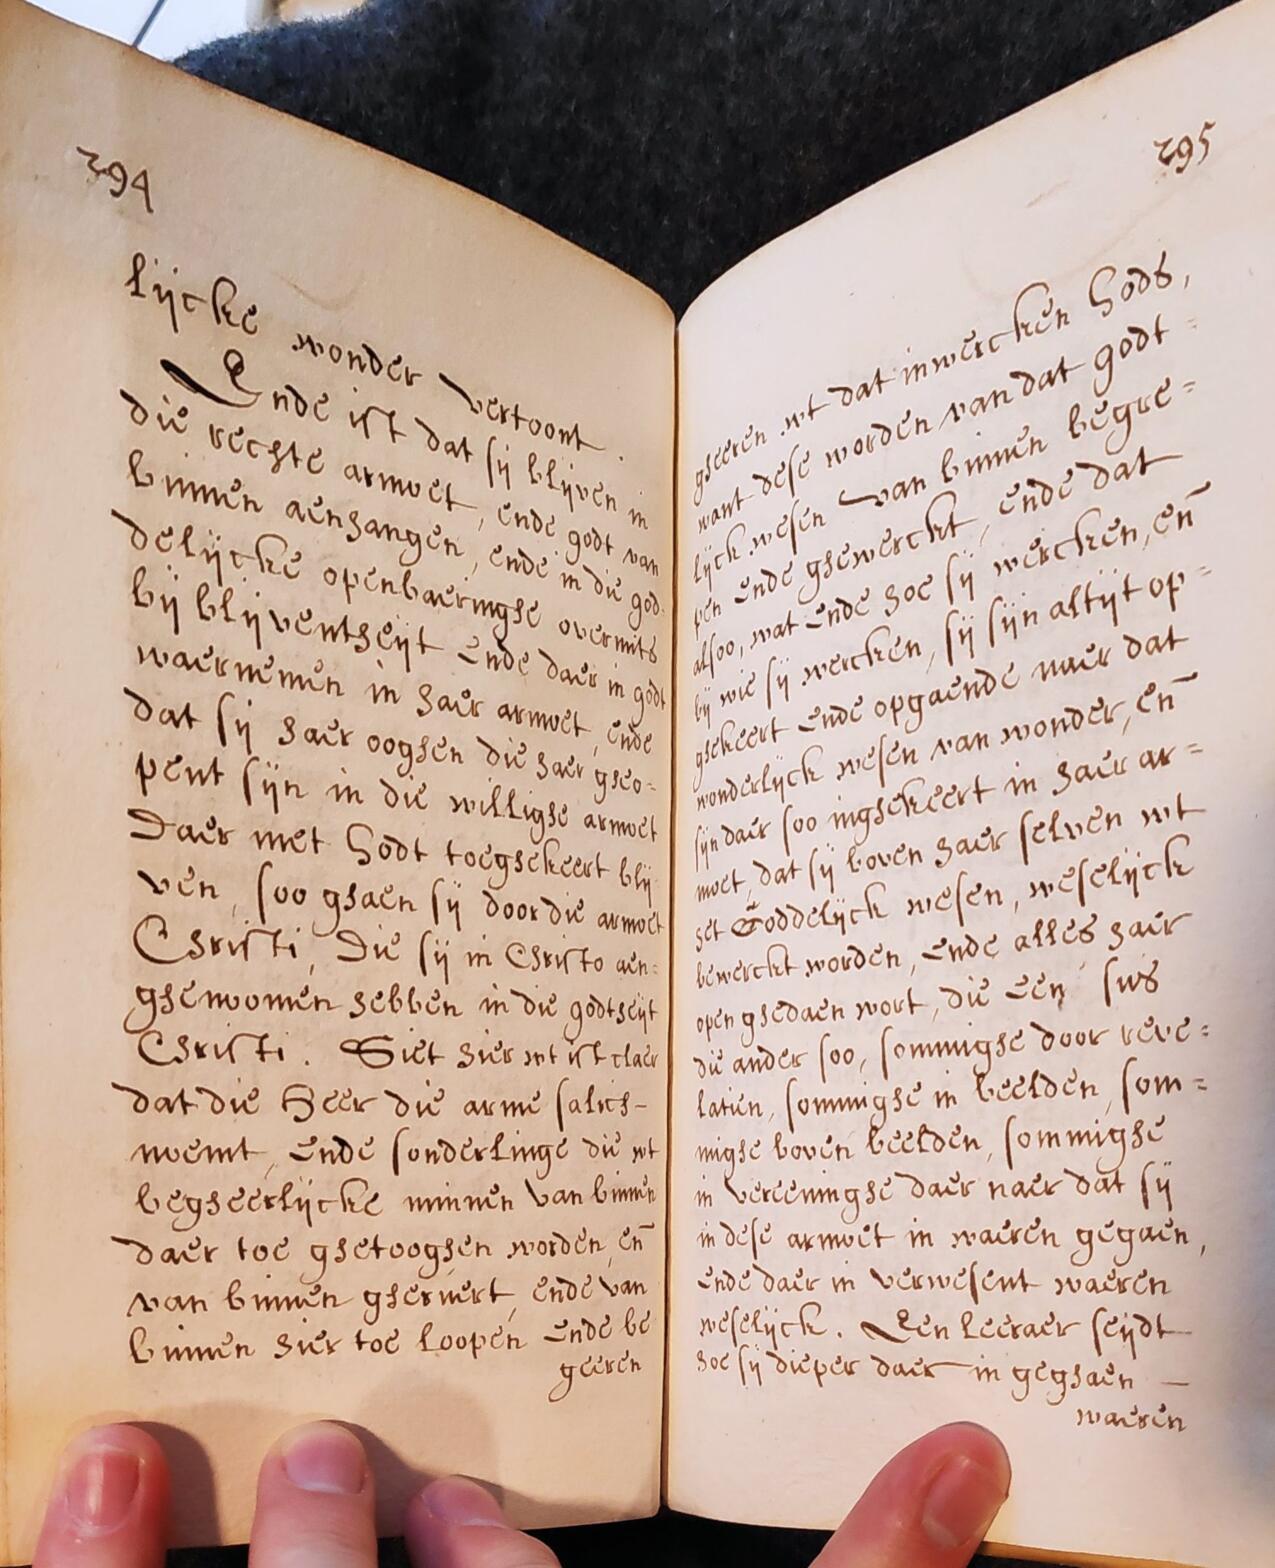 294
lijcke wonder vertoont.
Ende ist dat sij blijven in
die rechte armoet, ende godt van
binnen aenhangen, ende in die god-
delijcke openbaeringhe overmits
bij blijventheijt Ende daer in godt
waernemen in haer armoet, ende
dat sij haer ooghen die haer gheo=
pent sijn in die willighe armoet
Daer met Godt toeghekeert blij
ven, soo ghaen sij door die armoet
Christi, Die sij in Christo aen=
ghenoomen hebben in die godtheijt
Christi. Siet hier wt ist claer
dat die Heer die arme salich-
noemt, Ende sonderlinge die wt
begheerlijcke minnen van binnen
daer toe ghetooghen worden, en̄
van binnen gheruert, ende van
binnen hier toe loopen Ende be
geeren
295
gheeren wt dat inwercken Gods,
want dese worden van dat godt=
lijck wesen van binnen begre=
pen Ende ghewerckt, ende dat
alsoo, wat Ende hoe sij wercken, en̄
bij wie sij wercken, sij sijn altijt op=
ghekeert Ende opgaende naer dat
wonderlijck wesen van wonder, en̄
sijn daer soo inghekeert in haer ar=
moet, dat sij boven haer selven wt
het Goddelijck wesen, weselijck
bewerckt worden, Ende alles haer
open ghedaen wort, die Een sus
die ander soo, sommighe door reve=
latien, sommighe in beelden, som=
mighe boven beelden, sommighe
in vereeninghe daer naer dat sij
in dese armoet in waeren gegaen,
Ende daer in verwesent waeren
weselijck. Een leeraer seijdt
hoe sij dieper daer in geghaen
waeren